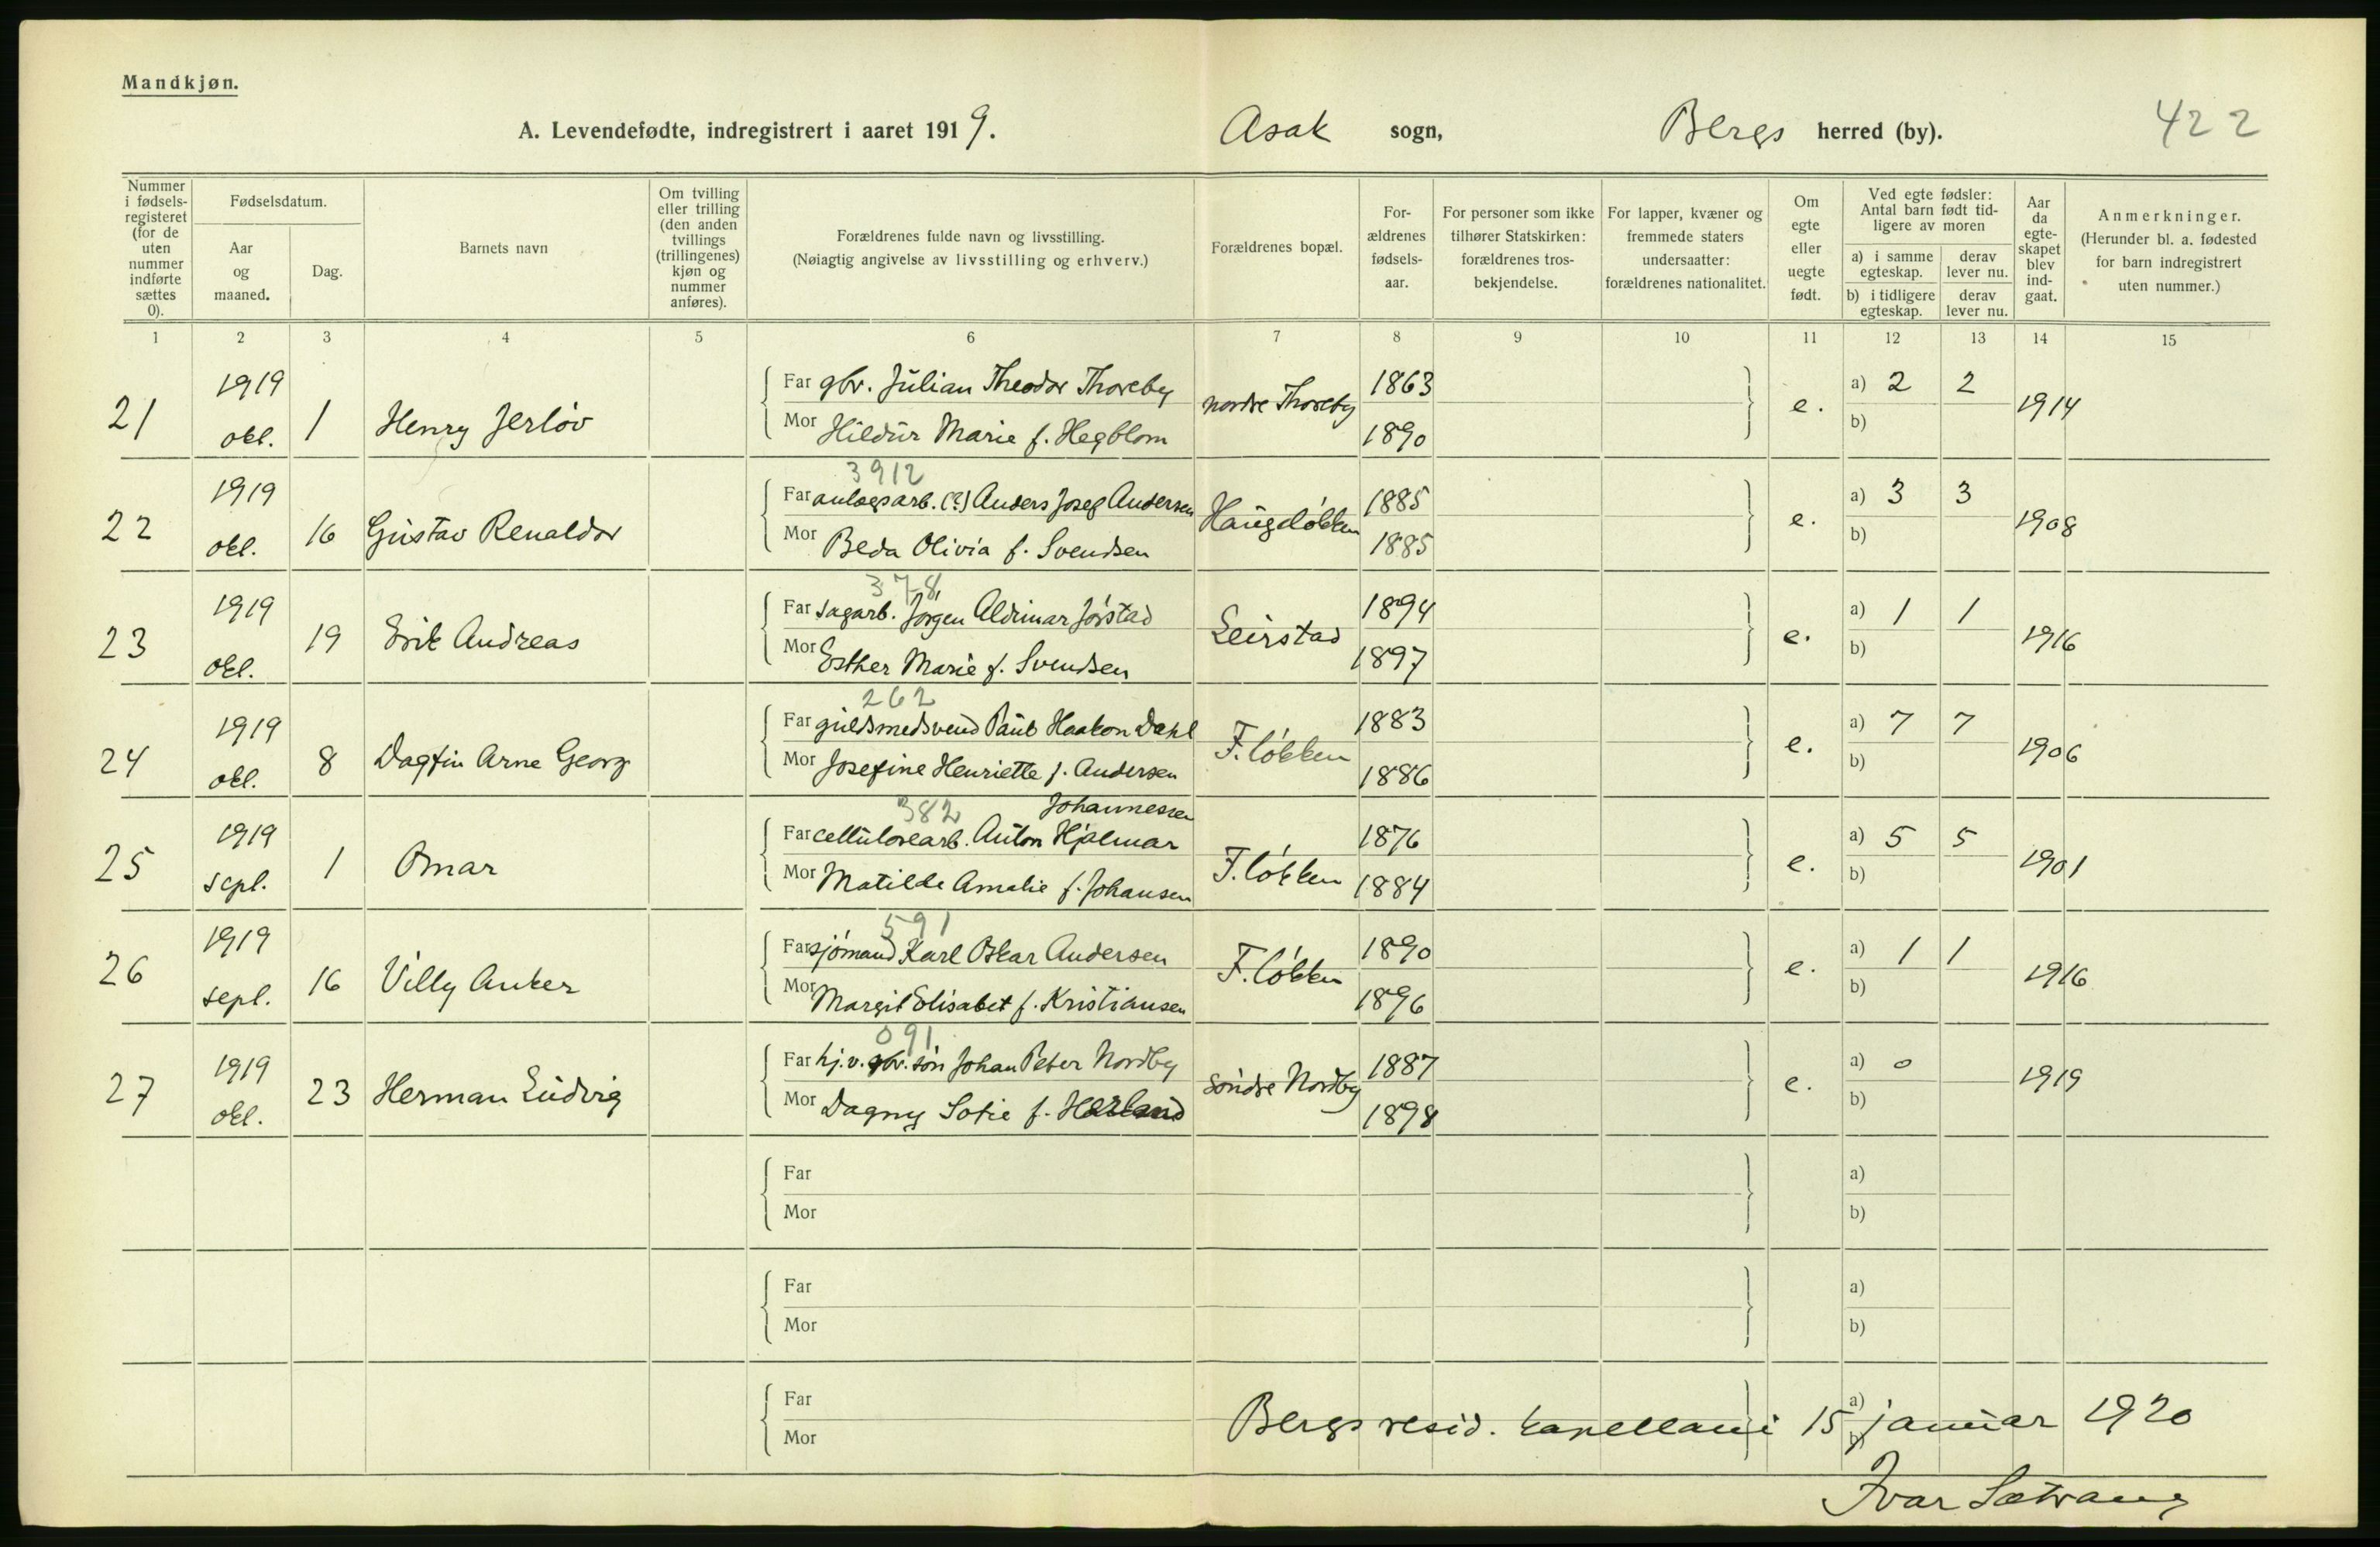 Mandkjøn.
A. Levendefødte, indregistrert i aaret 1919. Asak sogn, Bergs herred (by). 422
Nummer i fødsels-registeret (for de uten nummer indførte sættes 0).
Fødselsdatum.
Aar og maaned.
Dag.
Barnets navn
Om tvilling eller trilling (den anden tvillings (trillingenes) kjøn og nummer anføres).
Forældrenes fulde navn og livsstilling.
(Nøiagtig angivelse av livsstilling og erhverv.)
Forældrenes bopæl.
For-ældrenes fødsels-aar.
For personer som ikke tilhører Statskirken: forældrenes tros-bekjendelse.
For lapper, kvæner og fremmede staters undersaatter: forældrenes nationalitet.
Om egte eller uegte født.
Ved egte fødsler: Antal barn født tid-ligere av moren
a) i samme egteskap. derav lever nu.
b) i tidligere egteskap. derav lever nu.
Aar da egte-skapet blev ind-gaat.
Anmerkninger.
(Herunder bl. a. fødested for barn indregistrert uten nummer.)
1 2 3 4 5 6 7 8 9 10 11 12 13 14 15
21 1919 okt. 1 Henry Jerløv
Far gbr. Julian Theodor Thoreby nordre Thoreby 1863 e. a) 2 2 1914
Mor Hildur Marie f. Hegblom 1890 b)
3912
22 1919 okt. 16 Gustav Renaldor
Far anlægsarb. (?) Anders Josef Andersen Haugeløkken 1885 e. a) 3 3 1908
Mor Beda Olivia f. Svendsen 1885 b)
378
23 1919 okt. 19 Erik Andreas
Far sagarb. Jørgen Aldimar Jørstad Leirstad 1894 e. a) 1 1 1916
Mor Esther Marie f. Svendsen 1897 b)
262
24 1919 okt. 8 Dagfin Arne Georg
Far guldsmedsvend Paul Haakon Dahl F. løkken 1883 e. a) 7 7 1906
Mor Josefine Henriette f. Andersen 1886 b)
382 Johannessen
25 1919 sept. 1 Omar
Far cellulosearb. Anton Hjalmar F. løkken 1876 e. a) 5 5 1901
Mor Matilde Amalie f. Johansen 1884 b)
591
26 1919 sept. 16 Villy Anker
Far sjømand Karl Oskar Andersen F. løkken 1890 e. a) 1 1 1916
Mor Margit Elisabet f. Kristiansen 1896 b)
091
27 1919 okt. 23 Herman Ludvig
Far hj.v. gbr. søn Johan Peter Nordby søndre Nordby 1887 e. a) 0 1919
Mor Dagny Sofie f. 1898 b)
Far a)
Mor b)
Far a)
Mor b)
Far a)
Mor b)
Bergs resid. kapellani 15 januar 1920
Ivar Sætrang